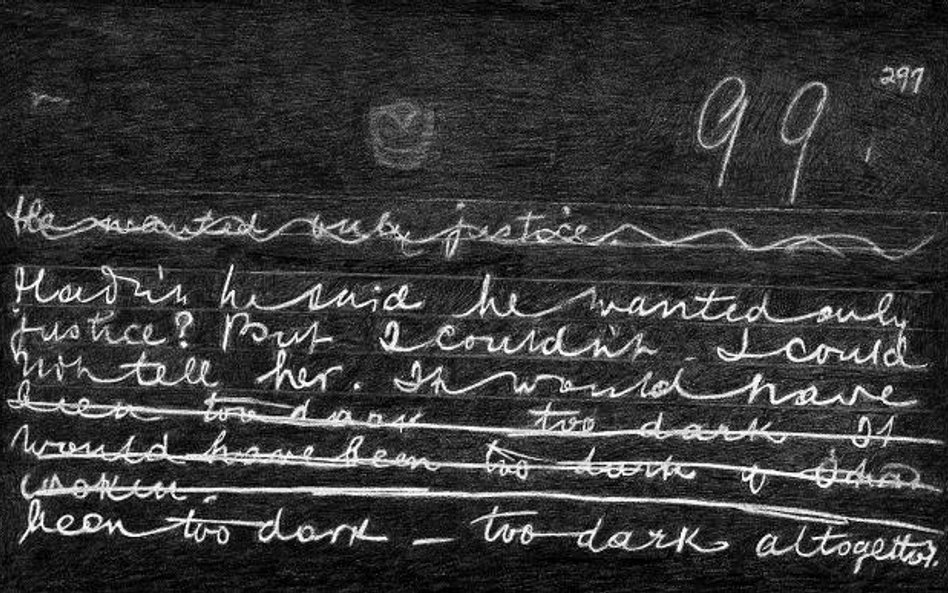 297
99
He wanted only justice.
Hadn't he said he wanted only
justice? But I couldn't. I could
not tell her. It would have
been too dark too dark It
would have been too dark
been too dark — too dark altogether.